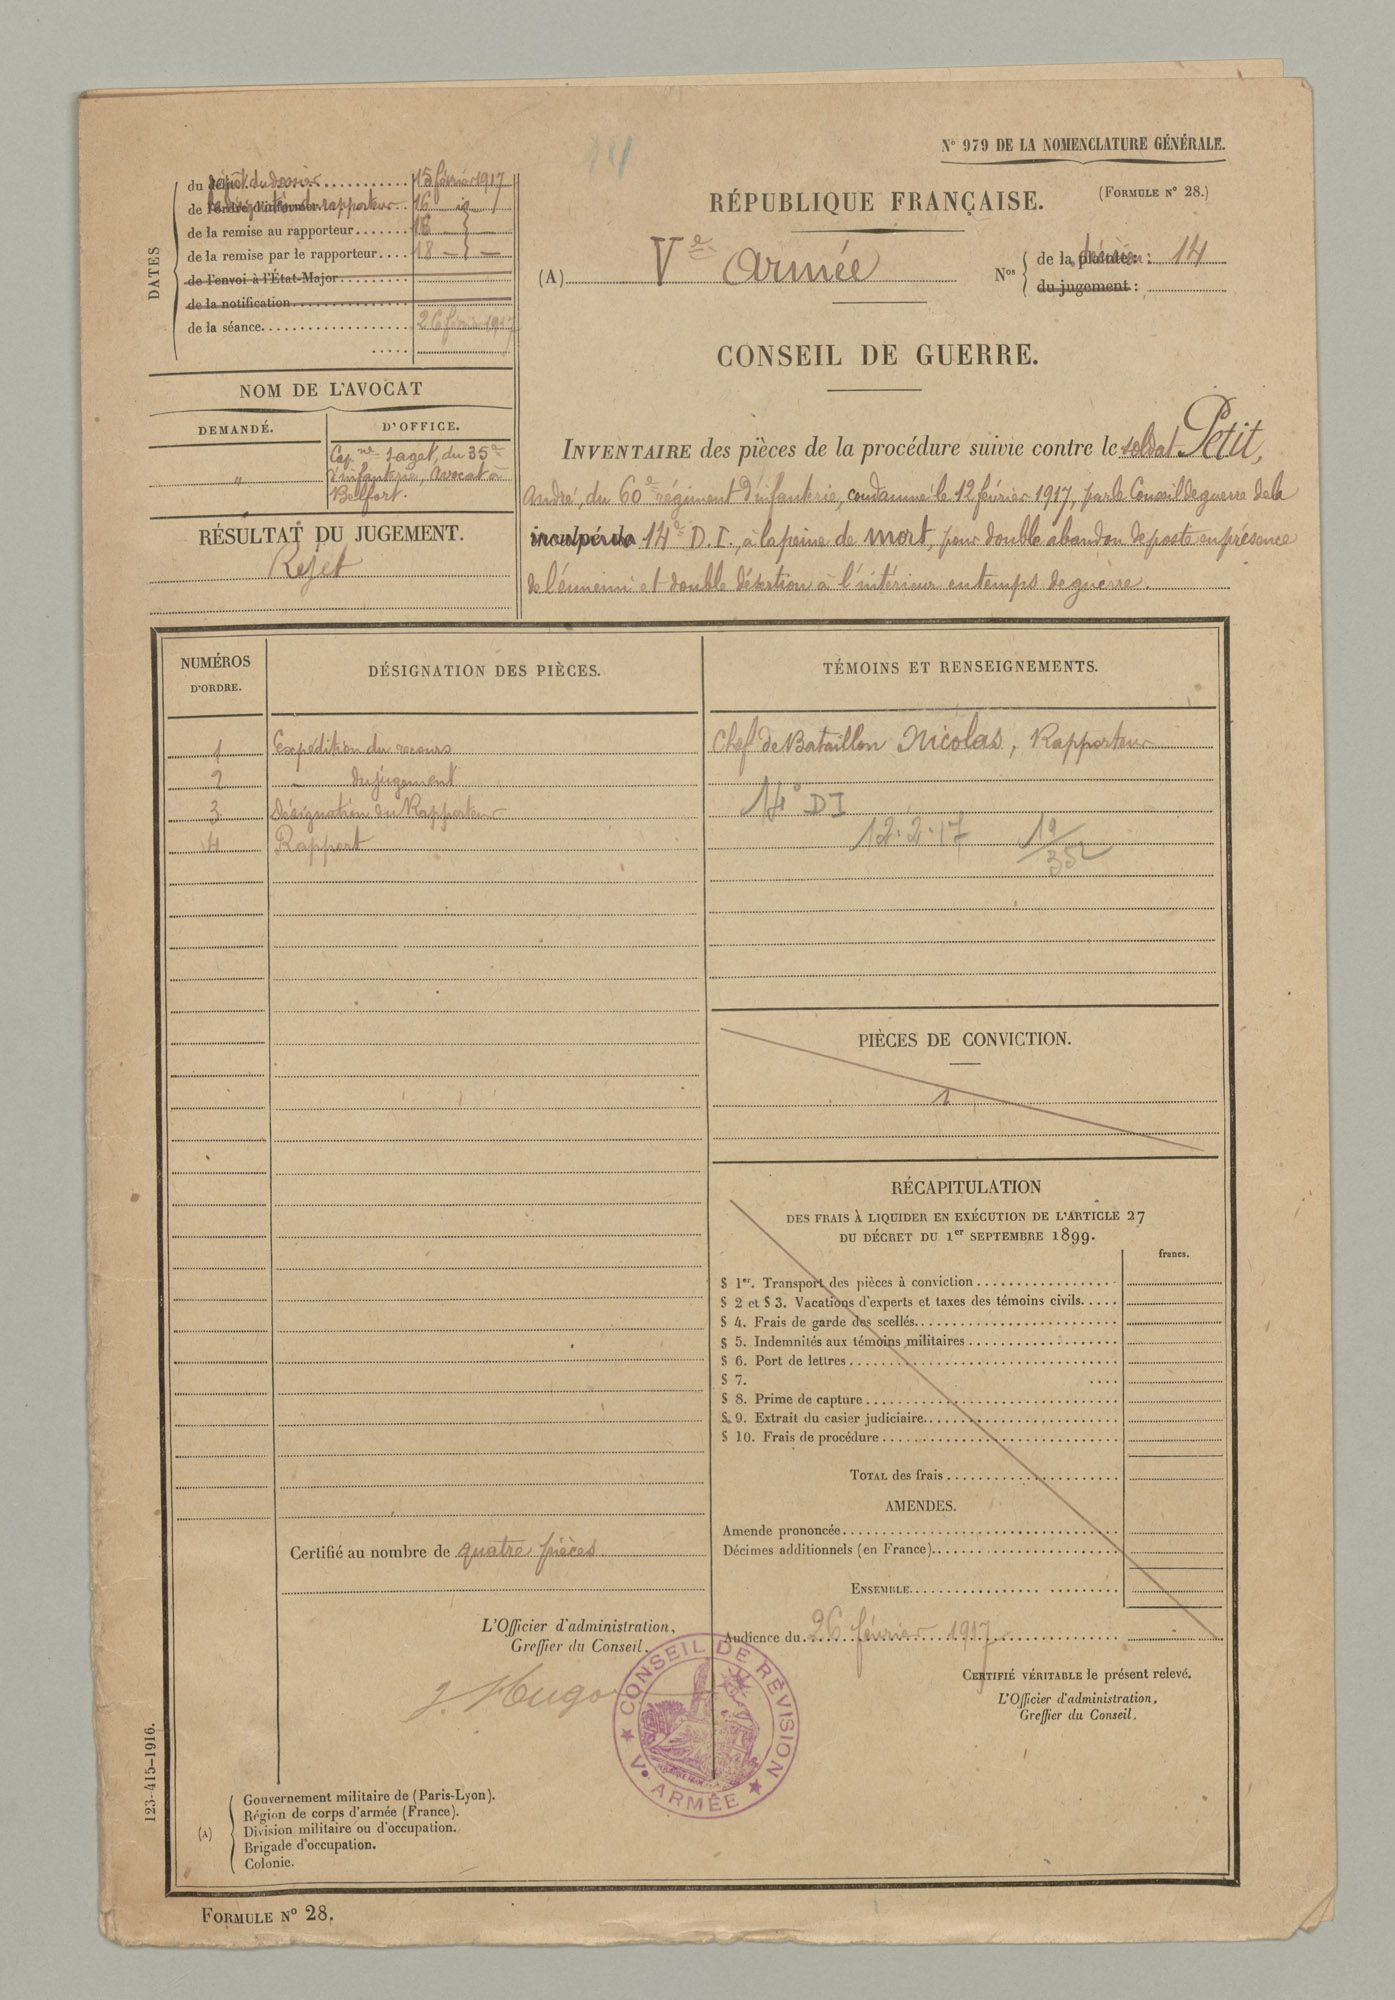 N° 979 DE LA NOMENCLATURE GÉNÉRALE.
(FORMULE N° 28.)
DATES
du dépôt du dossier 15 février 1917
de l'ordre d'informer rapporteur 16 id
de la remise au rapporteur 18 —
de la remise par le rapporteur 18 — —
de l'envoi à l'État-Major
de la notification
de la séance 26 février 1917
RÉPUBLIQUE FRANÇAISE.
(A) Ve Armée
Nos de la plainte : 14
du jugement :
CONSEIL DE GUERRE.
NOM DE L'AVOCAT
DEMANDÉ.
D'OFFICE.
"
Capne Saget, du 35e
d'infanterie, avocat à
Belfort.
RÉSULTAT DU JUGEMENT.
Rejet
INVENTAIRE des pièces de la procédure suivie contre le soldat Petit,
André, du 60e régiment d'infanterie, condamné le 12 février 1917, par le Conseil de guerre de la
inculpé de 14e D.I., à la peine de mort, pour double abandon de poste en présence
de l'ennemi et double désertion à l'intérieur en temps de guerre.
NUMÉROS
D'ORDRE.
DÉSIGNATION DES PIÈCES.
TÉMOINS ET RENSEIGNEMENTS.
1 Expédition du recours
2 – du jugement
3 Désignation du Rapporteur
4 Rapport
Chef de Bataillon Nicolas, Rapporteur
14e DI
12.2.17
19/352
PIÈCES DE CONVICTION.
RÉCAPITULATION
DES FRAIS À LIQUIDER EN EXÉCUTION DE L'ARTICLE 27
DU DÉCRET DU 1er SEPTEMBRE 1899.
francs.
§ 1er. Transport des pièces à conviction
§ 2 et § 3. Vacations d'experts et taxes des témoins civils.
§ 4. Frais de garde des scellés.
§ 5. Indemnités aux témoins militaires
§ 6. Port de lettres
§ 7.
§ 8. Prime de capture
§ 9. Extrait du casier judiciaire.
§ 10. Frais de procédure
TOTAL des frais
AMENDES.
Amende prononcée
Décimes additionnels (en France).
ENSEMBLE
Certifié au nombre de quatre pièces
L'Officier d'administration,
Greffier du Conseil.
J. Hugo
Audience du 26 février 1917
CERTIFIÉ VÉRITABLE le présent relevé.
L'Officier d'administration,
Greffier du Conseil.
CONSEIL DE RÉVISION
Ve ARMÉE
(A)
Gouvernement militaire de (Paris-Lyon).
Région de corps d'armée (France).
Division militaire ou d'occupation.
Brigade d'occupation.
Colonie.
123-415-1916.
FORMULE N° 28.